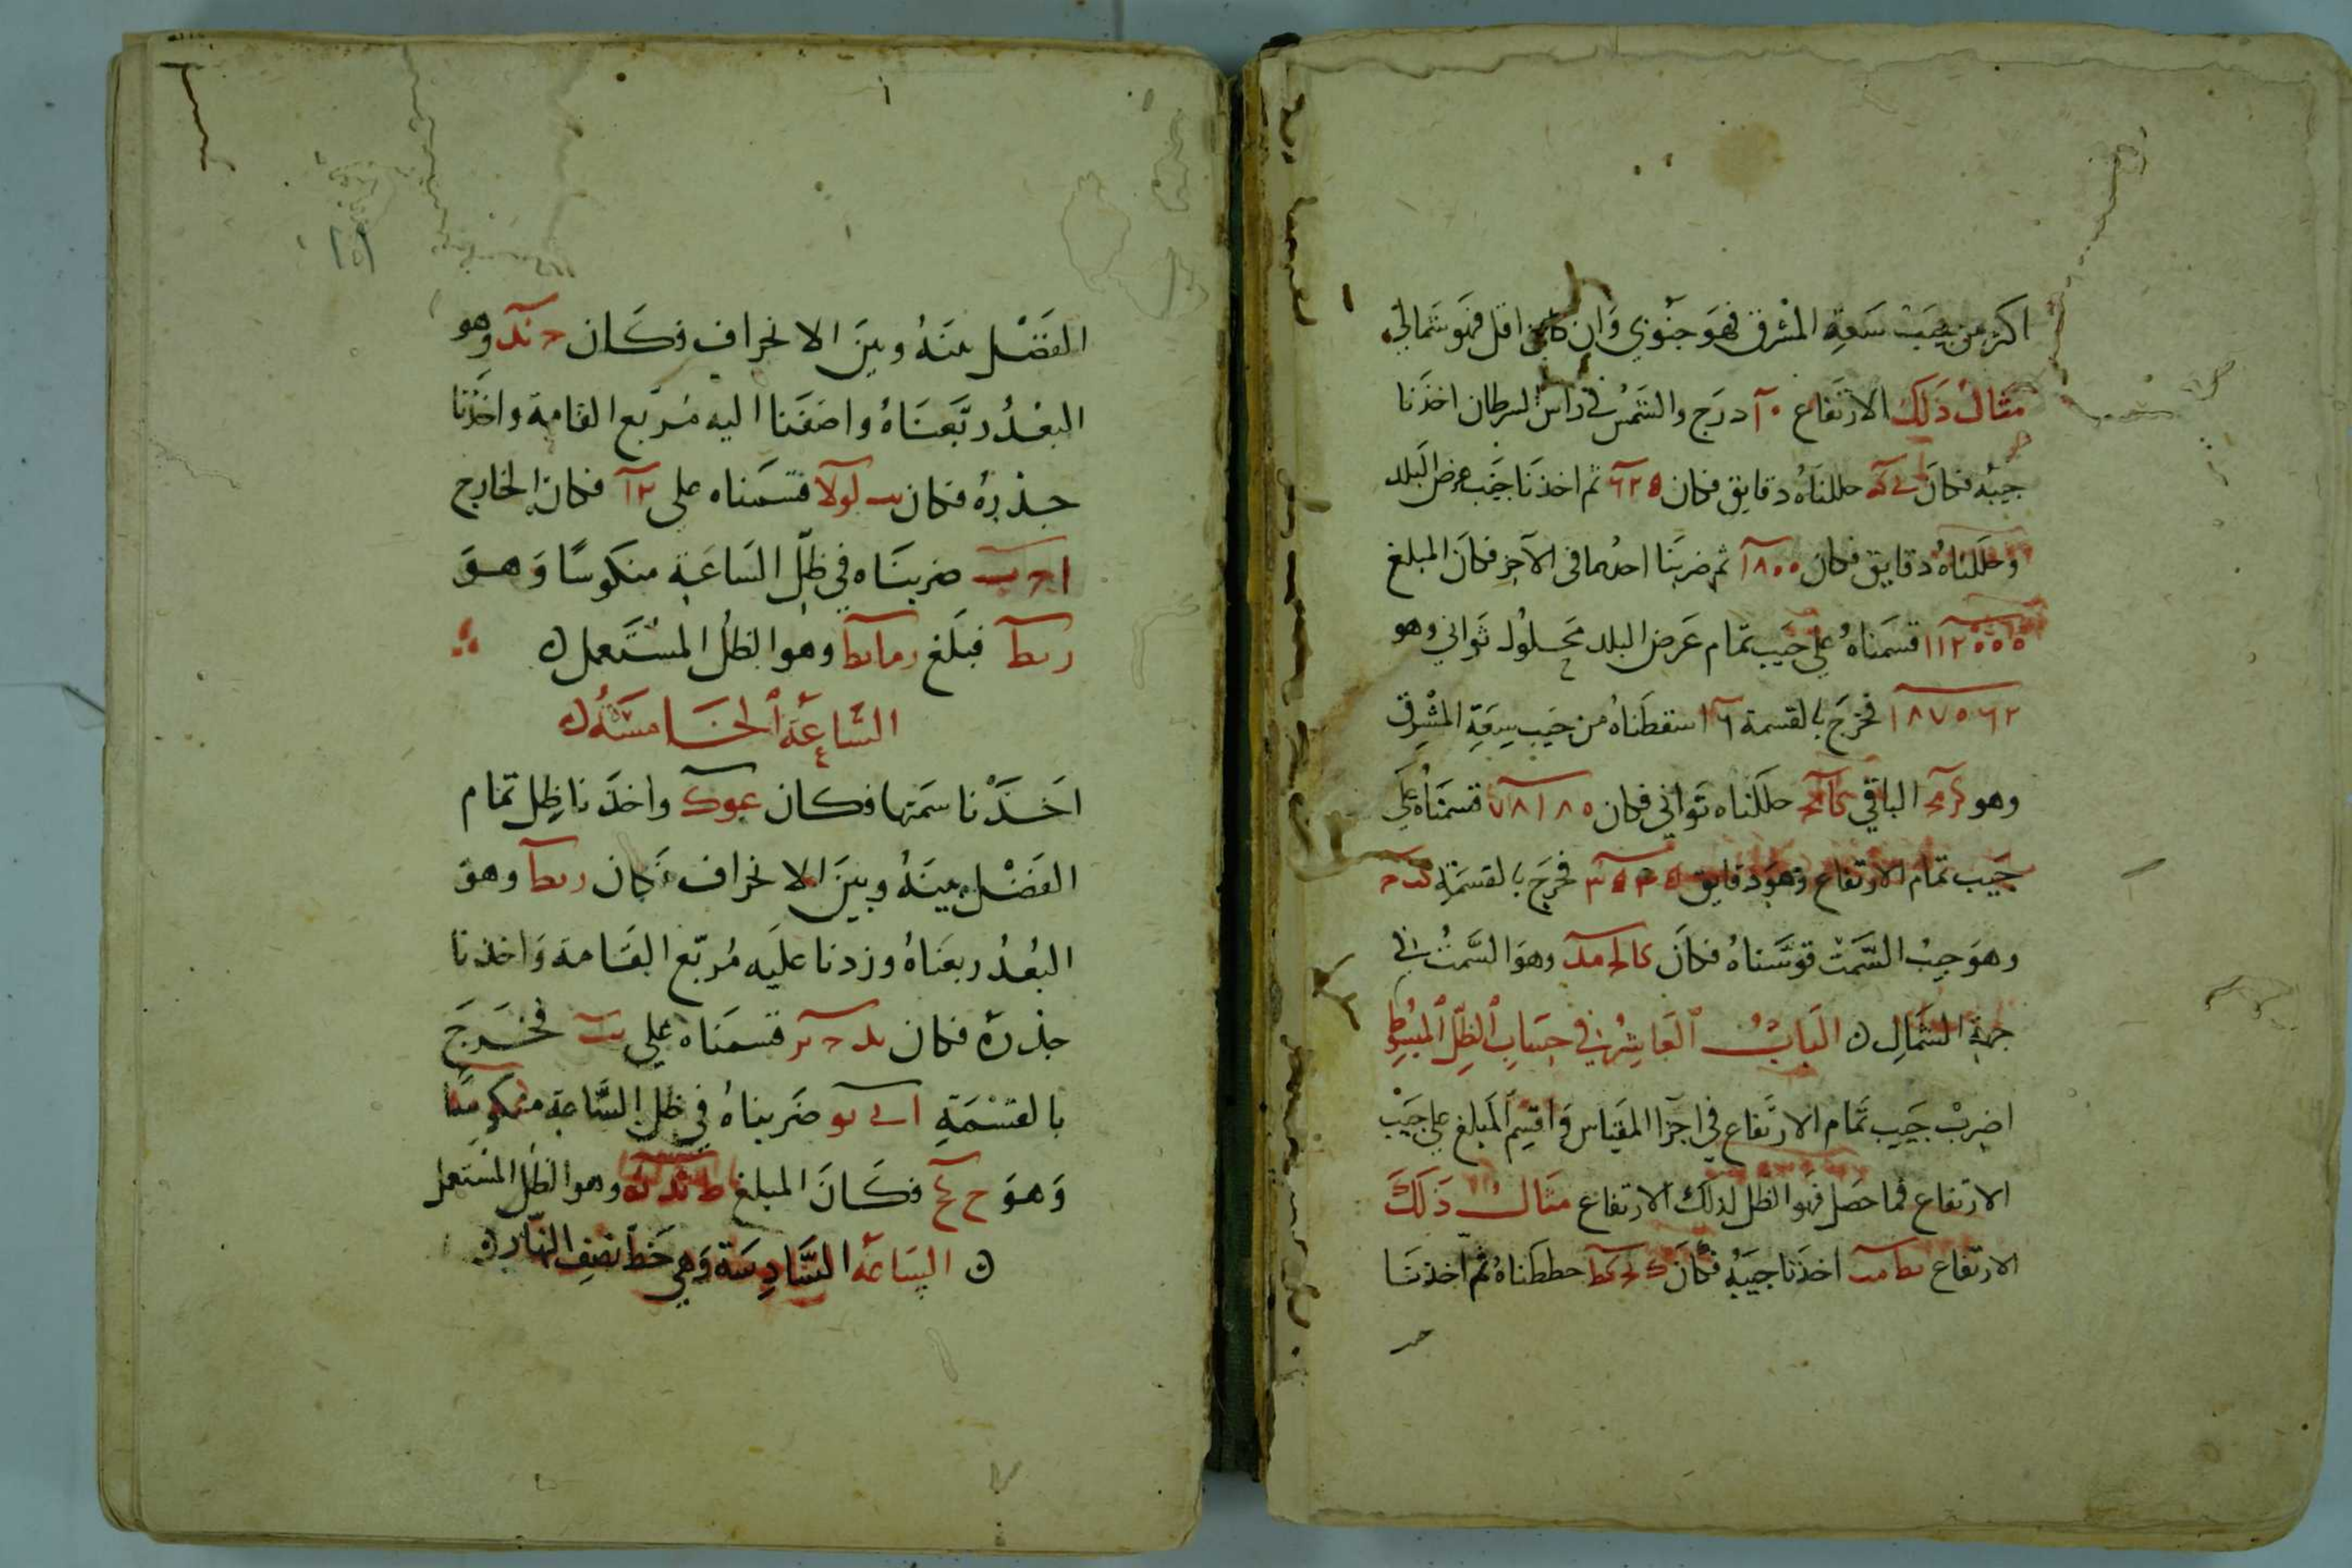 اكثر من جيب سَعةِ المشْرق فهوَ جنوبي وَان كان اقل فهو شمالي
مثالُ ذَلكَ الارتفاع ١٠ درَج والشمسُ في راس السرطان اخذنا
جيبهُ فكانَ ى كه حللناهُ دقايق فكان ٦٢٥ ثم اخذنا جَيبَ عرض البلد
وحَللناهُ دقايق فكان ١٨٠٠ ثم ضربَنا احدهما في الآخر فكان المبلغ
١١٢٥٠٠٠ قسَمناهُ على جَيب تمام عَرض البلد مَحلولٌ ثواني وهو
١٨٧٥٦٢ فخرجَ بالقسمة ٦ اسقطناهُ من جَيب سِعَةِ المشْرق
وهو الباقي حللناه ثواني فكان ٧٨١٨٥ قسمناهُ على
جَيب تمام الارتفاع وهوَ دقايق ٣٥٤٥ فخرجَ بالقسمَة
وهوَ جيبُ السَّمت قوسَّناهُ فكانَ كا لح مد وهوَ السَّمتُ في
جهةِ الشمالِ ن البَابُ العَاشِرُ في حِسَابِ الظلِّ المبسُوط
اضربْ جَيب تمام الارتفاع في اجزا المقياس وَاقسِم المبلغ على جَيْب
الارتفاع فما حصَل فهو الظل لذلكَ الارتفاع مثالُ ذَلكَ
الارتفاع يط مب اخذنا جيبَهُ فكانَ حططناهُ ثم اخذنا
الفَضْل بينَهُ وبينَ الانحراف فكان ح ند وهو
البعْدُ ربَّعنَاهُ واضفنا اليه مُربّع القامة واخذنا
جذرهُ فكان يب لو لا قسَمناه على ١٢ فكان الخارج
ا ح ب ضربنَاه في ظلّ السَاعَة منكوسًا وَهوَ
ر يط فبلَغ ر ما يط وهو الظلُ المسْتعمل ن
السَّاعَة الخَامسَةُ ن
اخَذْنا سمَتها فكان عو ك واخذنا ظِل تمام
الفَضْل بينَهُ وبينَ الانحراف فكان ر يط وهوَ
البُعْدُ ربعنَاهُ وزدنا عليَه مُربّع القَامة وَاخذنا
جذرهُ فكان يد ح قسمَناهُ على يب فخرَجَ
بالقسْمَةِ ا ى يو ضَربناهُ في ظل السَّاعة منكوسًا
وَهوَ فكَانَ المبلغ ط ند نه وهو الظل المستعمل
ن السَاعَة السَّادِسَة وَهي خَط نصفِ النهار ن